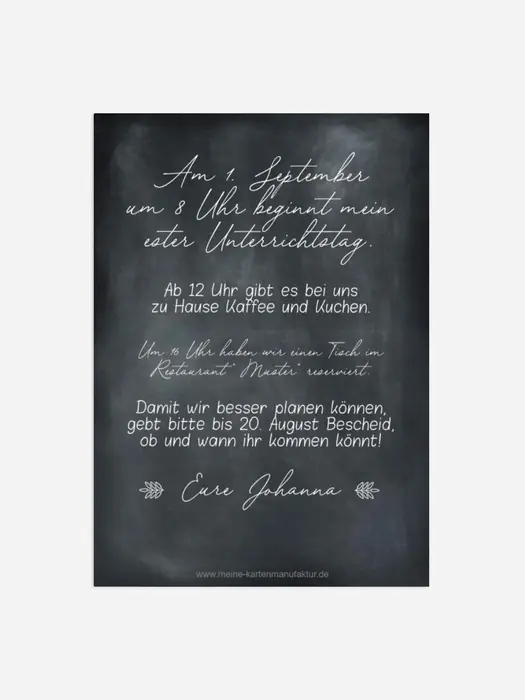 Am 1. September
um 8 Uhr beginnt mein
ester Unterrichtstag.
Ab 12 Uhr gibt es bei uns
zu Hause Kaffee und Kuchen.
Um 16 Uhr haben wir einen Tisch im
Restaurant "Muster" reserviert.
Damit wir besser planen können,
gebt bitte bis 20. August Bescheid,
ob und wann ihr kommen könnt!
Eure Johanna
www.meine-kartenmanufaktur.de